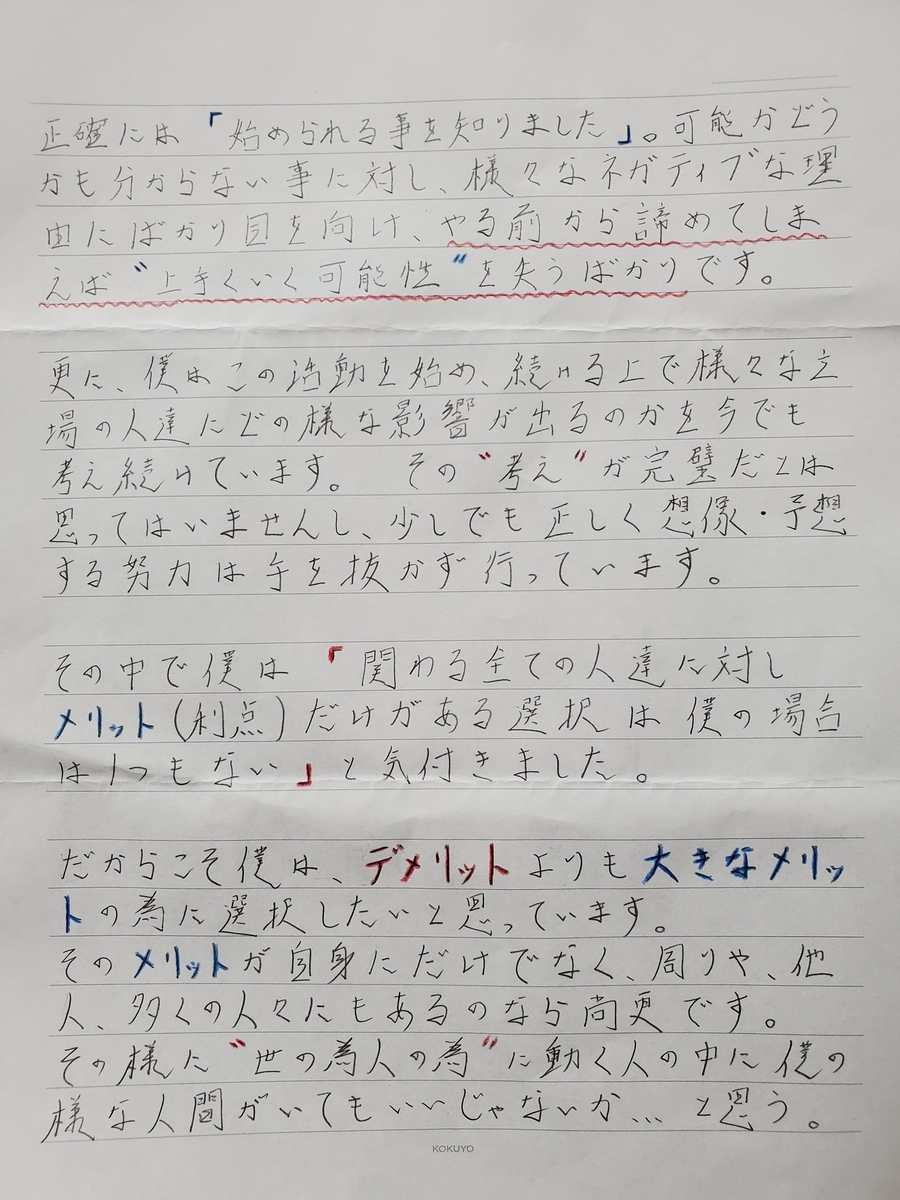 正確には「始められる事を知りました」。可能かどう
かも分からない事に対し、様々なネガティブな理
由にばかり目を向け、やる前から諦めてしま
えば“上手くいく可能性”を失うばかりです。
更に、僕はこの活動を始め、続ける上で様々な立
場の人達にどの様な影響が出るのかを今でも
考え続けています。 その“考え”が完璧だとは
思ってはいませんし、少しでも正しく想像・予想
する努力は手を抜かず行っています。
その中で僕は「関わる全ての人達に対し
メリット(利点)だけがある選択は僕の場合
は1つもない」と気付きました。
だからこそ僕は、デメリットよりも大きなメリッ
トの為に選択したいと思っています。
そのメリットが自身にだけでなく、周りや、他
人、多くの人々にもあるのなら尚更です。
その様に“世の為人の為”に動く人の中に僕の
様な人間がいてもいいじゃないか… と思う。
KOKUYO